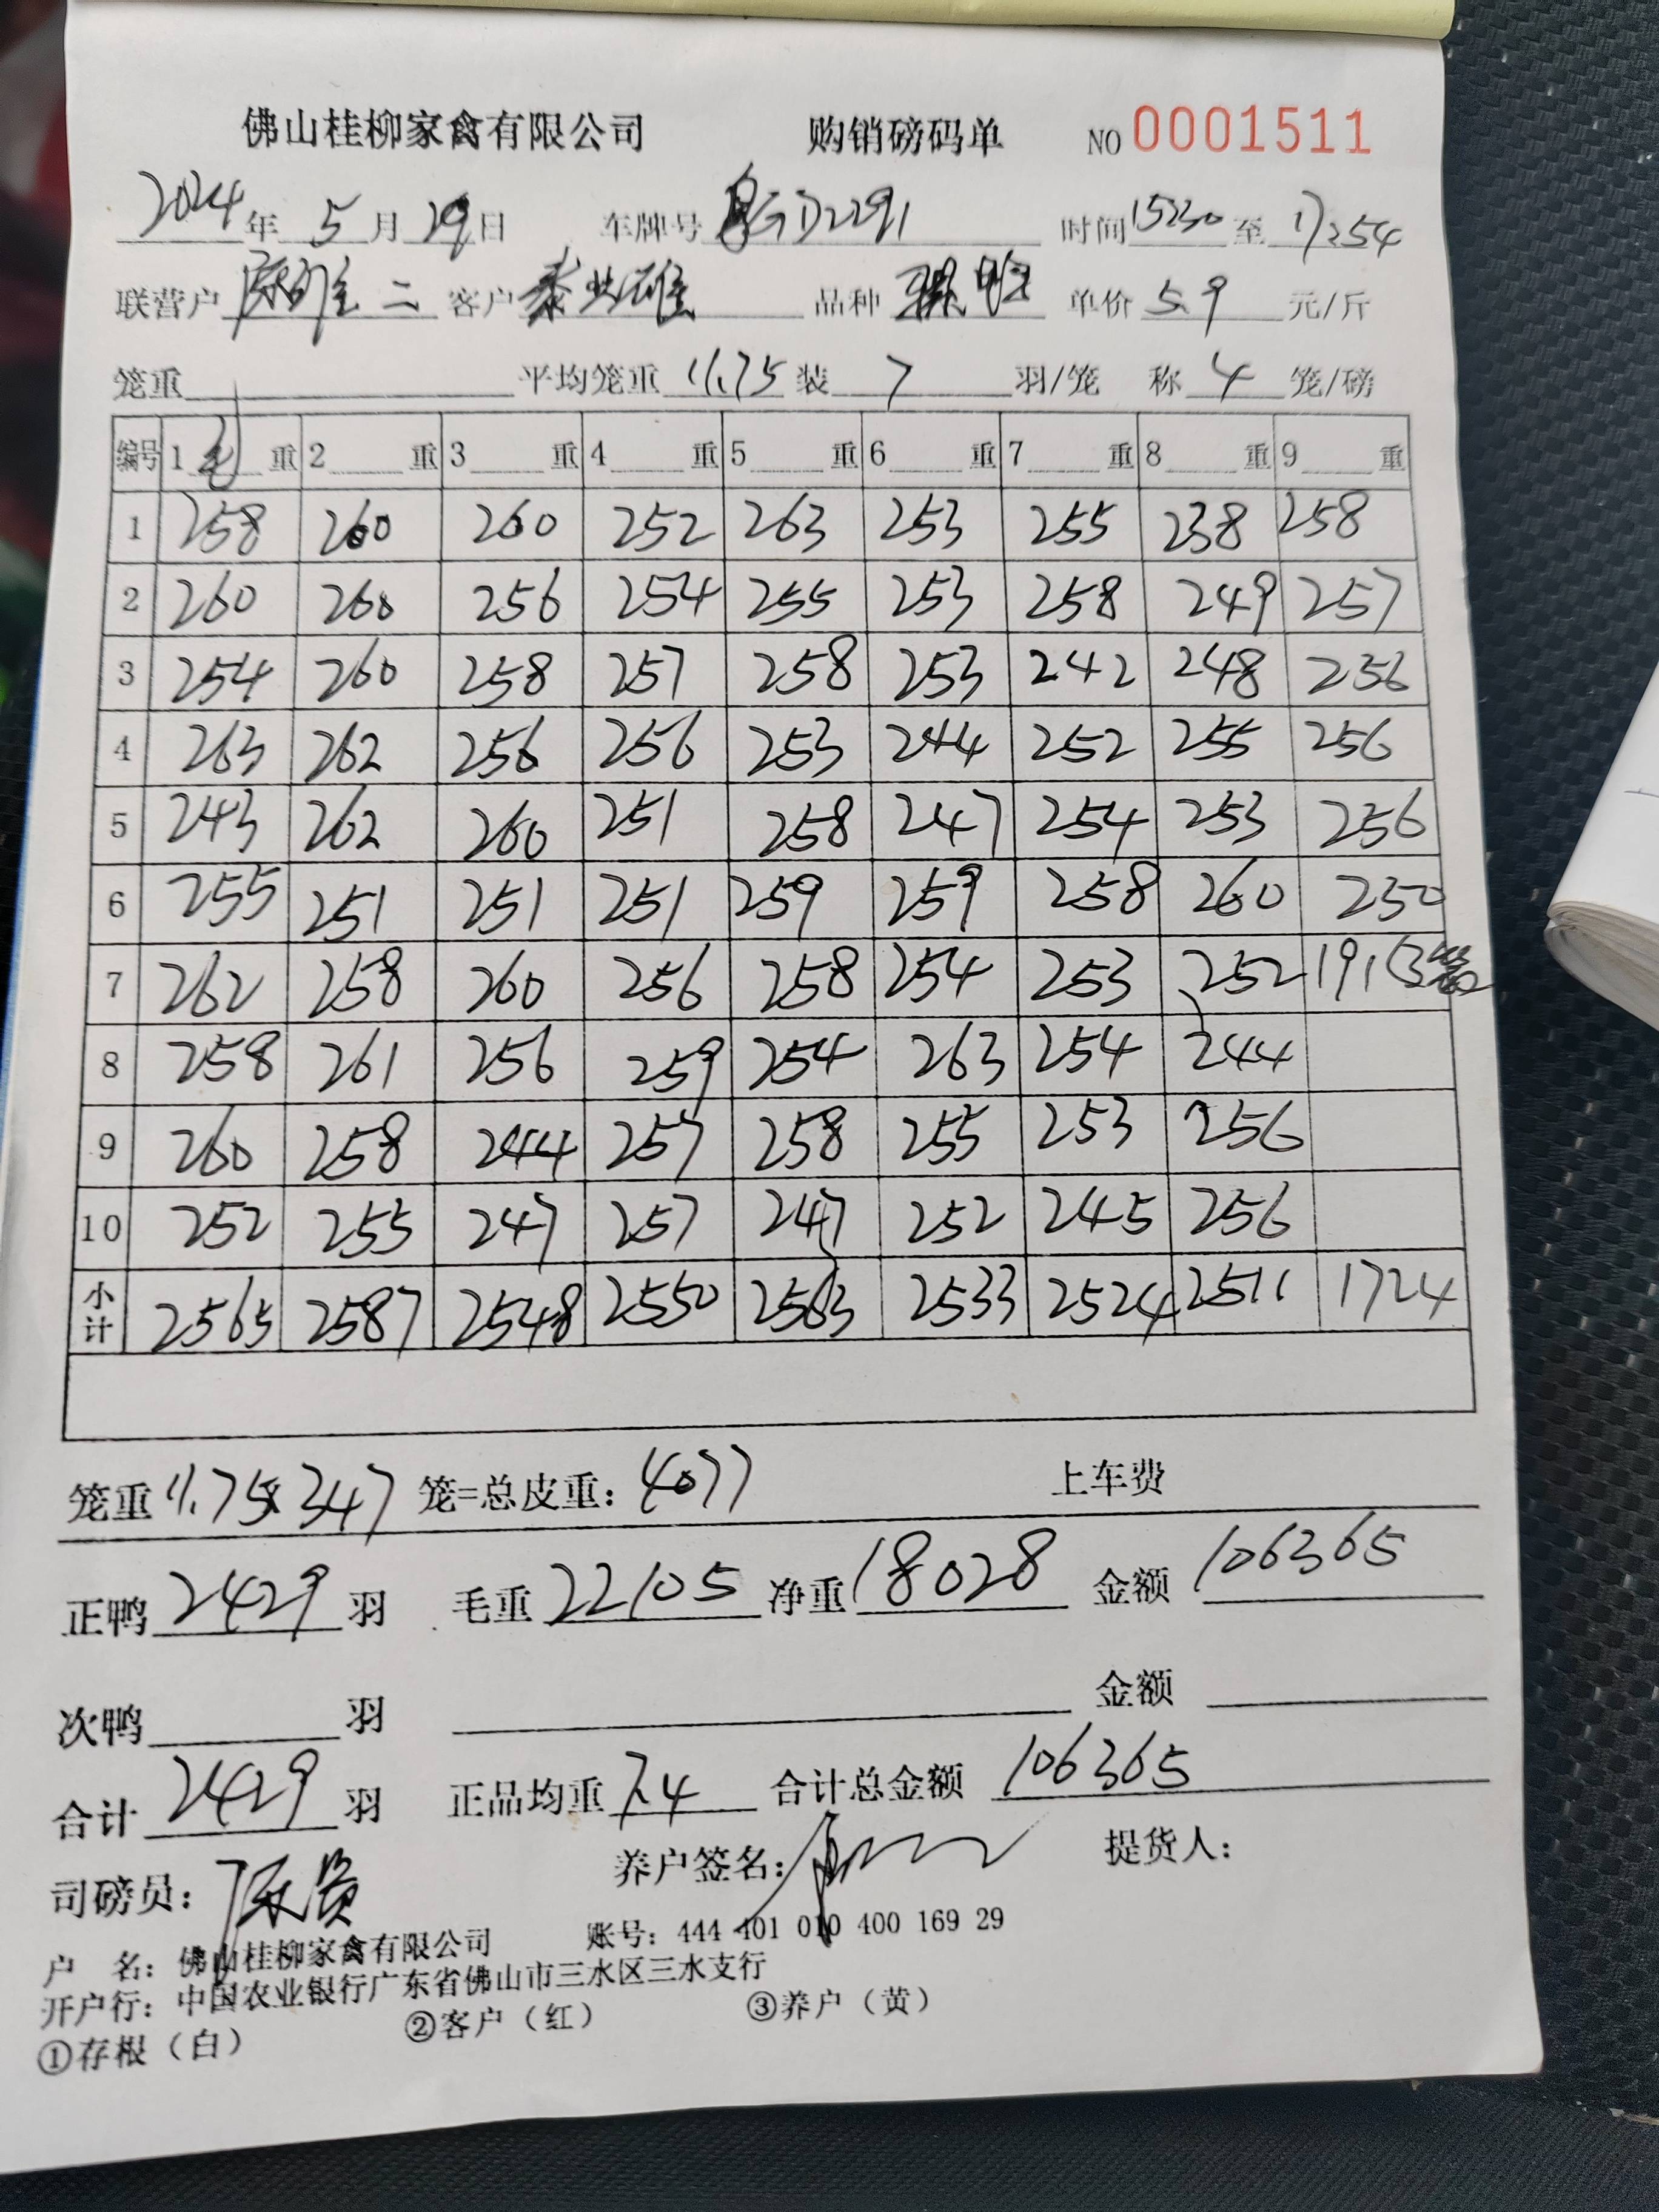 佛山桂柳家禽有限公司 购销磅码单 NO 0001511
2024年 5 月 29日 车牌号 GD2291 时间 15:30 至 17:54
联营户 二 客户 品种 单价 5.9 元/斤
笼重 平均笼重 11.75 装 7 羽/笼 称 4 笼/磅
编号 1 毛 重 2 重 3 重 4 重 5 重 6 重 7 重 8 重 9 重
1 258 260 260 252 263 253 255 238 258
2 260 260 256 254 255 253 258 249 257
3 254 260 258 257 258 253 242 248 256
4 263 262 256 256 253 244 252 255 256
5 243 262 260 251 258 247 254 253 256
6 255 251 251 251 259 259 258 260 250
7 262 258 260 256 258 254 253 252 191(3
8 258 261 256 259 254 263 254 244
9 260 258 244 257 258 255 253 256
10 252 255 247 257 247 252 245 256
小计 2565 2587 2548 2550 2563 2533 2524 2511 1724
笼重 11.75x347 笼=总皮重：4077 上车费
正鸭 2429 羽 毛重 22105 净重 18028 金额 106365
次鸭 羽 金额
合计 2429 羽 正品均重 7.4 合计总金额 106365
司磅员： 养户签名： 提货人：
户 名：佛山桂柳家禽有限公司 账号：444 401 010 400 169 29
开户行：中国农业银行广东省佛山市三水区三水支行
①存根（白） ②客户（红） ③养户（黄）